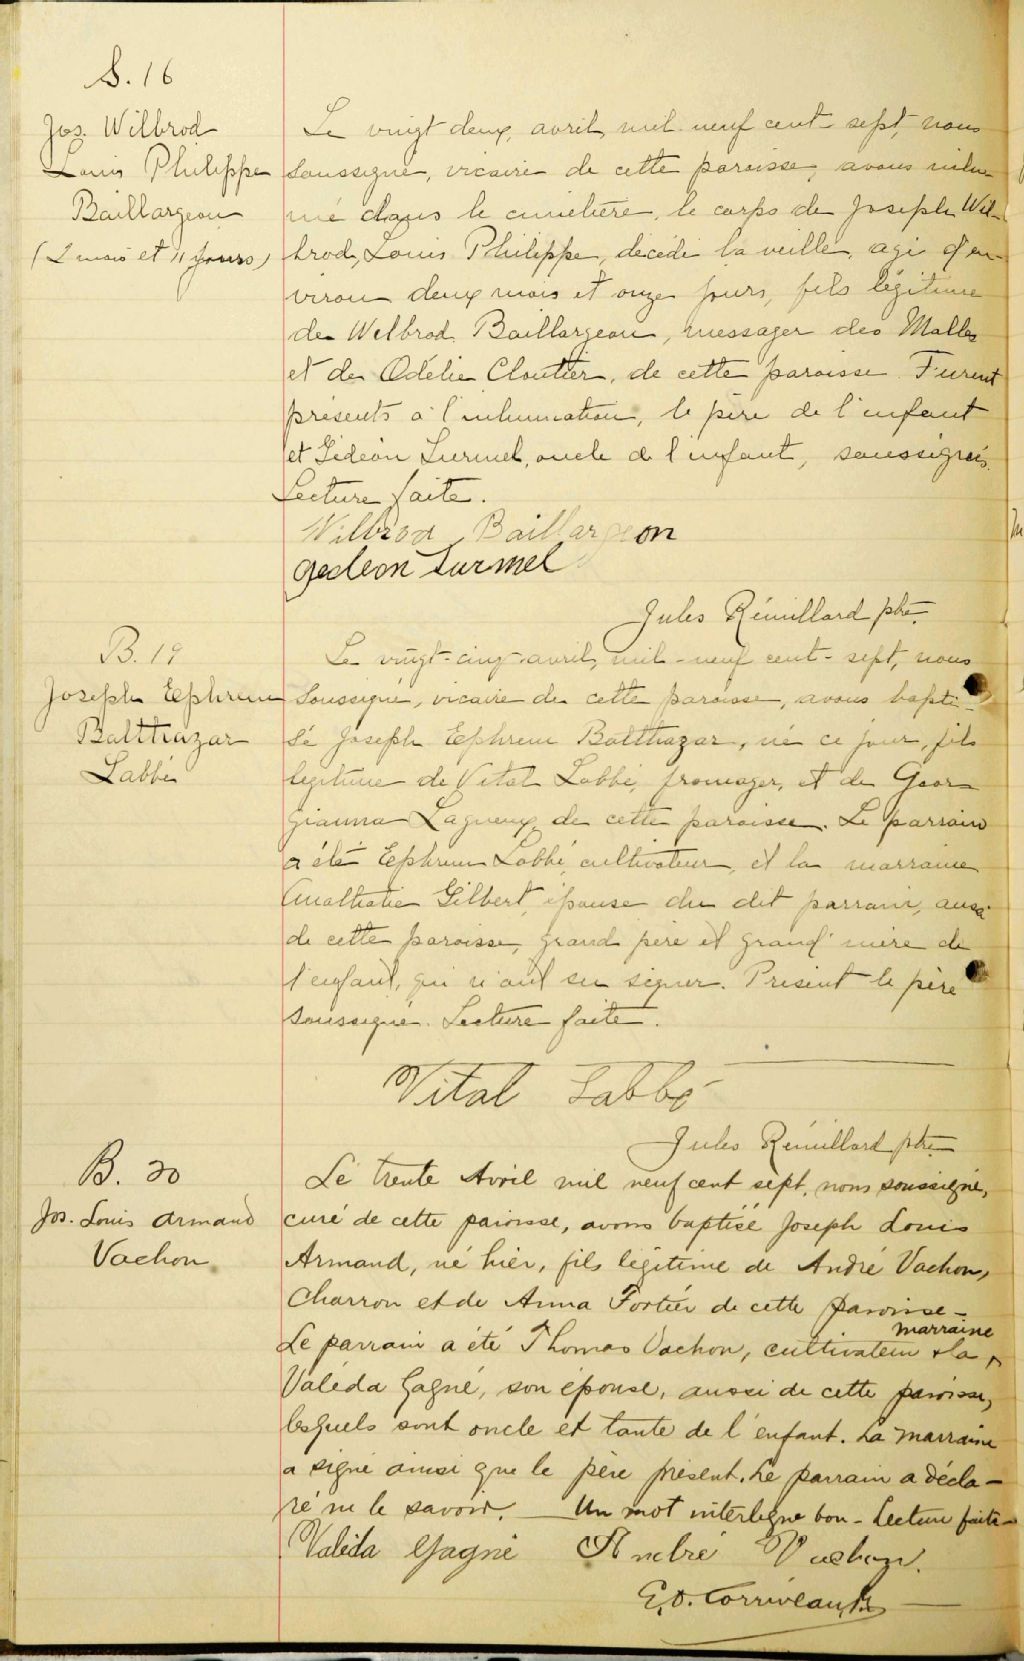 S. 16
Jos. Wilbrod
Louis Philippe
Baillargeon
(2 mois et 11 jours)
Le vingt deux, avril, mil neuf cent-sept, nous
soussigné, vicaire de cette paroisse, avons inhu
mé dans le cimetière, le corps de Joseph Wil-
brod, Louis Philippe, décédé la veille, agé d'en-
viron deux mois et onze jours, fils légitime
de Wilbrod Baillargeon, messager des Malles
et de Odélie Cloutier, de cette paroisse. Furent
présents à l'inhumation, le père de l'enfant
et Gédéon Turmel, oncle de l'enfant, soussignés.
Lecture faite.
Wilbrod Baillargeon
gedeon Turmel
Jules Rémillard ptre.
B. 19
Joseph Ephrem
Balthazar
Labbé
Le vingt-cinq avril, mil-neuf cent-sept, nous
soussigné, vicaire de cette paroisse, avons bapti-
sé Joseph Ephrem Balthazar, né ce jour, fils
légitime de Vital Labbé, fromager, et de Geor
gianna Lagueux de cette paroisse. Le parrain
a été Ephrem Labbé, cultivateur, et la marraine
Gilbert, épouse du dit parrain, aussi
de cette paroisse, grand père et grand'mère de
l'enfant, qui n'ont su signer. Présent le père
soussigné. Lecture faite.
Vital Labbé
Jules Rémillard ptre
B. 20
Jos. Louis Armand
Vachon
Le trente Avril mil neuf cent sept, nous soussigné,
curé de cette paroisse, avons baptisé Joseph Louis
Armand, né hier, fils légitime de André Vachon,
Charron et de Anna Fortier de cette paroisse-
marraine
Le parrain a été Thomas Vachon, cultivateur & la
Valéda Gagné, son épouse, aussi de cette paroisse,
lesquels sont oncle et tante de l'enfant. La marraine
a signé ainsi que le père présent. Le parrain a décla-
ré ne le savoir. Un mot interligne bon - Lecture faite-
Valéda Gagné André Vachon.
E.O. Corriveau, Ptr